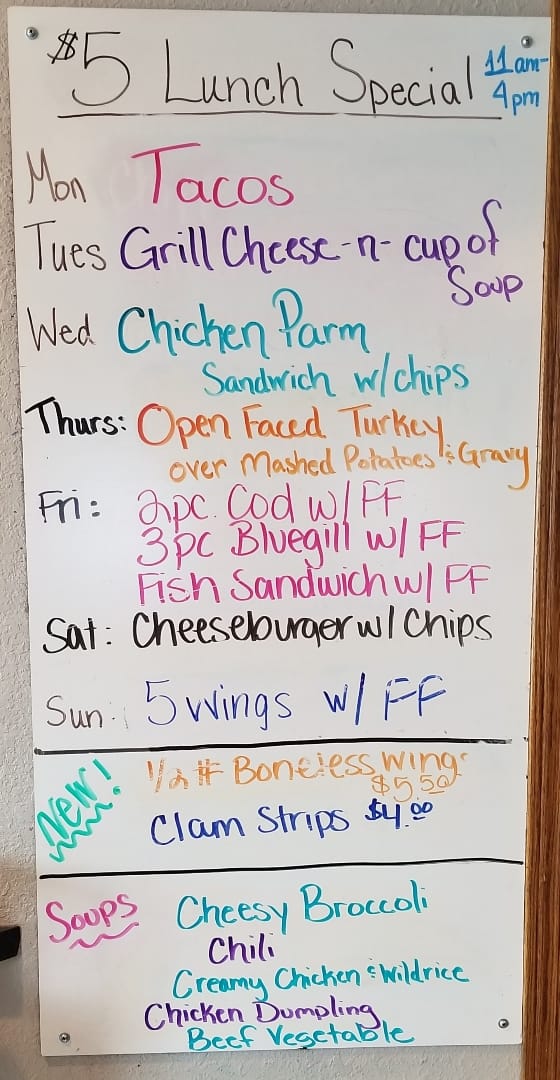 $5 Lunch Special 11am-
4pm
Mon Tacos
Tues Grill Cheese -n- cup of
Soup
Wed Chicken Parm
Sandwich w/chips
Thurs: Open Faced Turkey
over Mashed Potatoes & Gravy
Fri: 2pc. Cod w/ FF
3pc Bluegill w/ FF
Fish Sandwich w/ FF
Sat: Cheeseburger w/ Chips
Sun: 5 Wings w/ FF
NEW! 1/2 # Boneless Wings
$5.50
Clam Strips $4.00
Soups Cheesy Broccoli
Chili
Creamy Chicken & Wildrice
Chicken Dumpling
Beef Vegetable